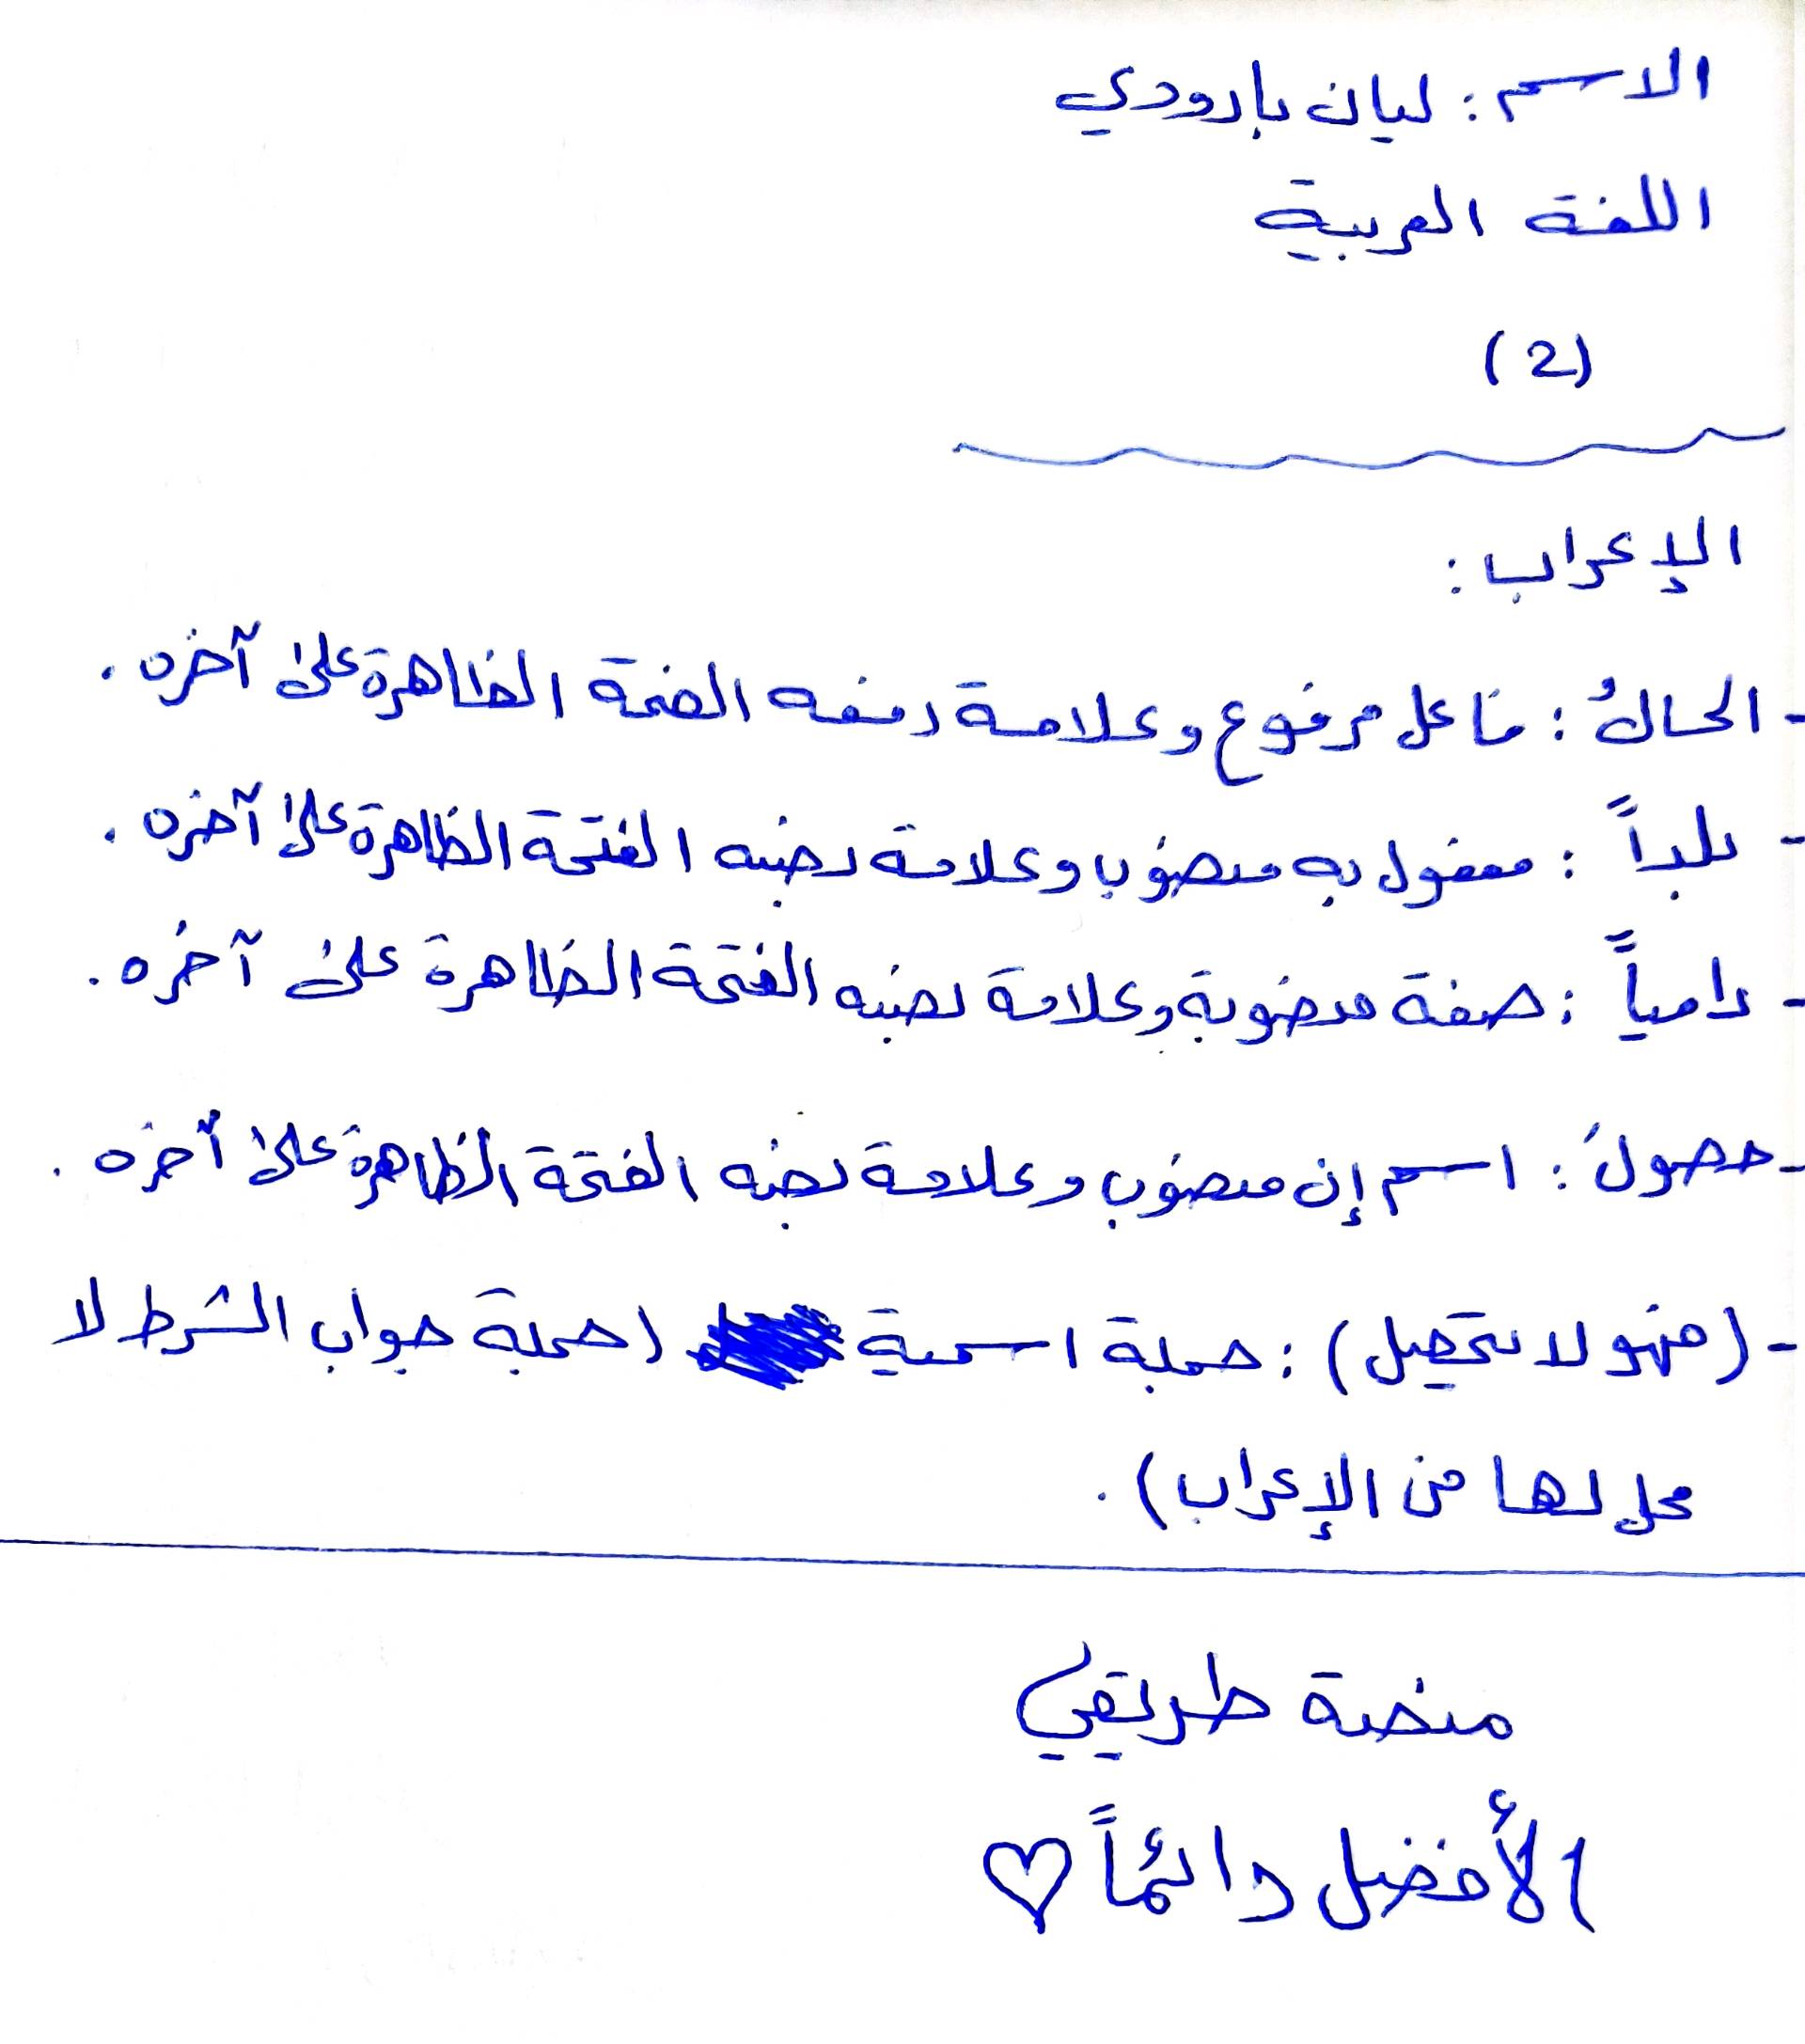 الاسم : ليان بارودي
اللغة العربية
(2)
الإعراب :
- الحالُ : فاعل مرفوع وعلامة رفعه الضمة الظاهرة على آخره .
- بلداً : مفعول به منصوب وعلامة نصبه الفتحة الظاهرة على آخره .
- دامياً : صفة منصوبة وعلامة نصبه الفتحة الظاهرة على آخره .
- حصولَ : اسم إن منصوب وعلامة نصبه الفتحة الظاهرة على آخره .
- (فهو لا يحصل) : جملة اسمية (جملة جواب الشرط لا
محل لها من الإعراب) .
منصة طريقي
الأفضل دائماً ♡